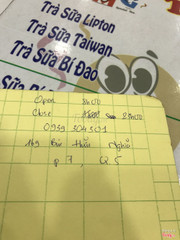 Trà Sữa Lipton
Trà Sữa Taiwan
Trà Sữa Bí Đao
Open 8h00
Close 23h00
0939 304301
149 Bùi Hữu Nghĩa
P 7, Q 5